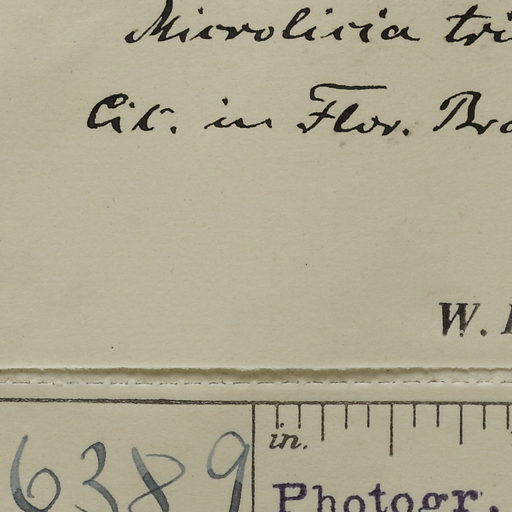 Microlicia
Cit. in Flor.
W.
6389
in.
Photogr.